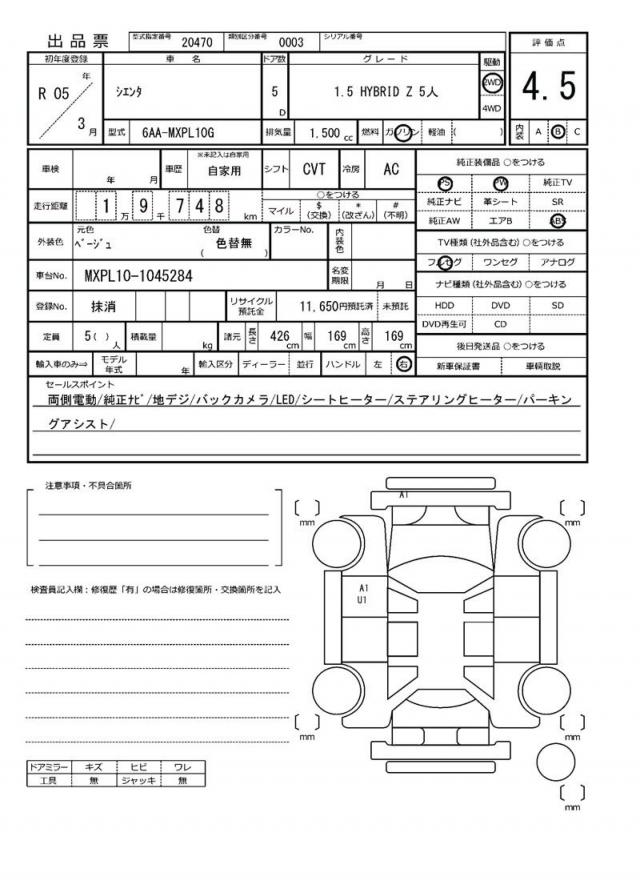 出品票
型式指定番号 20470 類別区分番号 0003 シリアル番号
評価点
4.5
内装 A B C
初年度登録 車名 ドア数 グレード 駆動
R 05 年 3 月
シエンタ
5 D
1.5 HYBRID Z 5人
2WD
4WD
型式 6AA-MXPL10G 排気量 1,500 cc 燃料 ガソリン 軽油 ( )
車検 年 月 車歴 ※未記入は自家用 自家用 シフト CVT 冷房 AC
走行距離 1 万 9 千 7 4 8 km
○をつける
マイル $ (交換) * (改ざん) # (不明)
外装色 元色 ベージュ 色替 ( 色替無 ) カラーNo. 内装色
車台No. MXPL10-1045284 名変期限 月 日
登録No. 抹消 リサイクル預託金 11,650円預託済 未預託
定員 5( ) 人 積載量 kg 諸元 長さ 426 cm 幅 169 cm 高さ 169 cm
輸入車のみ⇒ モデル年式 年 輸入区分 ディーラー 並行 ハンドル 左 右
純正装備品 ○をつける
PS PW 純正TV
純正ナビ 革シート SR
純正AW エアB ABS
TV種類(社外品含む) ○をつける
フルセグ ワンセグ アナログ
ナビ種類(社外品含む) ○をつける
HDD DVD SD
DVD再生可 CD
後日発送品 ○をつける
新車保証書 車輌取説
セールスポイント
両側電動/純正ナビ/地デジ/バックカメラ/LED/シートヒーター/ステアリングヒーター/パーキン
グアシスト/
注意事項・不具合箇所
検査員記入欄:修復歴「有」の場合は修復箇所・交換箇所を記入
ドアミラー キズ ヒビ ワレ
工具 無 ジャッキ 無
A1
A1
U1
mm
mm
mm
mm
mm